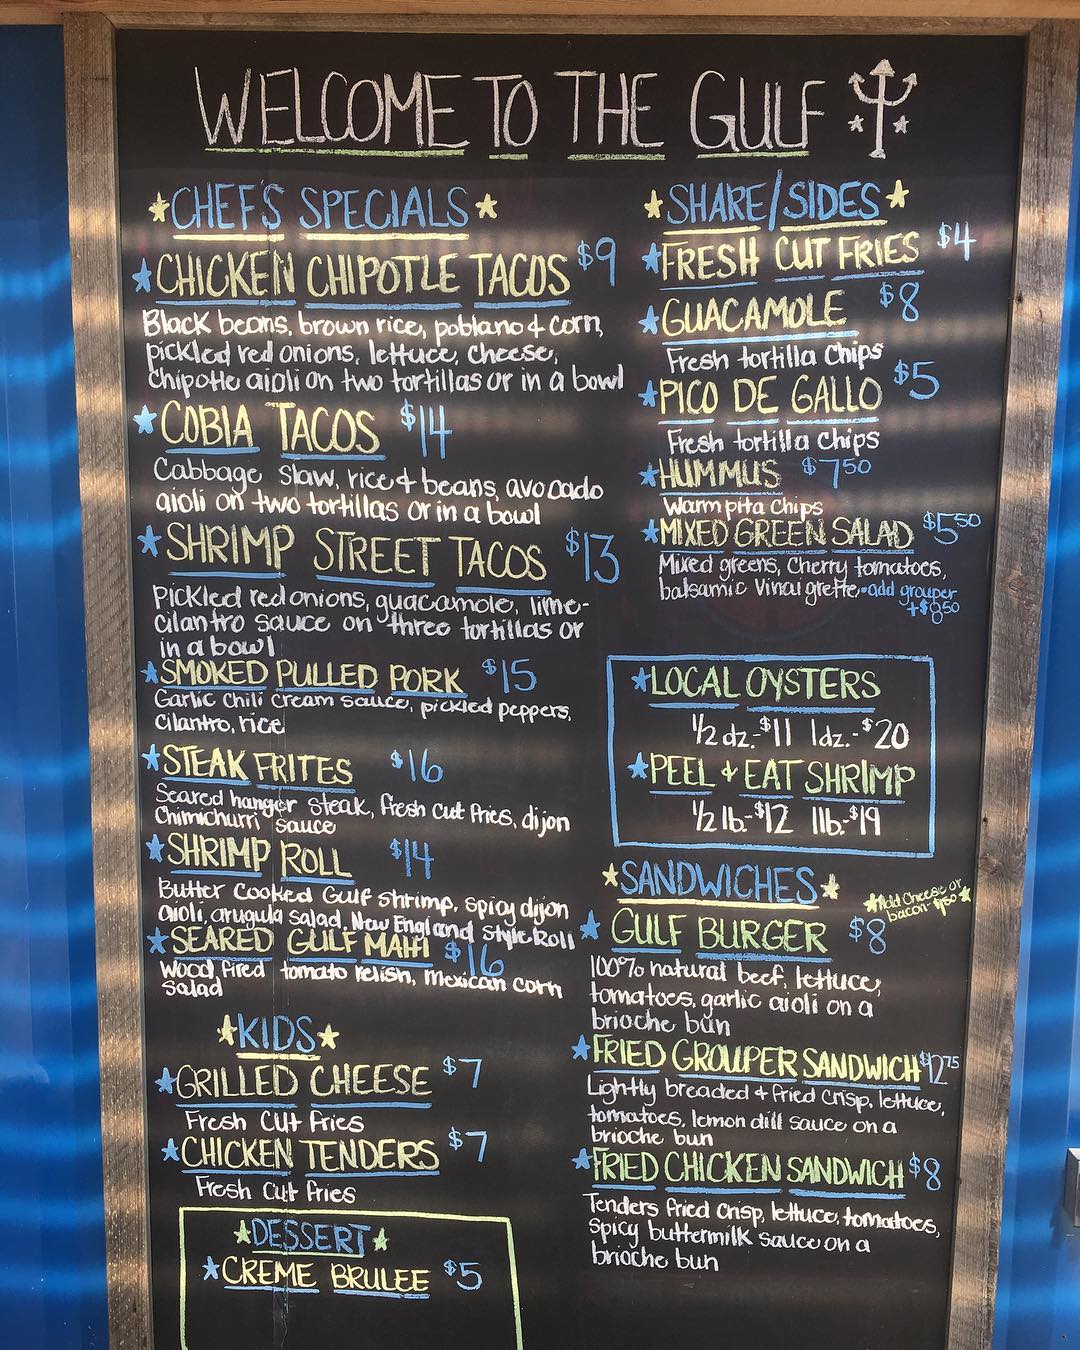 WELCOME TO THE GULF
CHEF'S SPECIALS
CHICKEN CHIPOTLE TACOS $9
Black beans, brown rice, poblano & corn,
pickled red onions, lettuce, cheese,
chipotle aioli on two tortillas or in a bowl
COBIA TACOS $14
Cabbage slaw, rice & beans, avocado
aioli on two tortillas or in a bowl
SHRIMP STREET TACOS $13
Pickled red onions, guacamole, lime-
cilantro sauce on three tortillas or
in a bowl
SMOKED PULLED PORK $15
Garlic chili cream sauce, pickled peppers,
cilantro, rice
STEAK FRITES $16
Seared hanger steak, fresh cut fries, dijon
Chimichurri sauce
SHRIMP ROLL $14
Butter cooked Gulf shrimp, spicy dijon
aioli, arugula salad, New England Style Roll
SEARED GULF MAHI $16
Wood fired tomato relish, Mexican corn
salad
KIDS
GRILLED CHEESE $7
Fresh cut fries
CHICKEN TENDERS $7
Fresh cut fries
DESSERT
CREME BRULEE $5
SHARE/SIDES
FRESH CUT FRIES $4
GUACAMOLE $8
Fresh tortilla chips
PICO DE GALLO $5
Fresh tortilla chips
HUMMUS $7.50
Warm pita chips
MIXED GREEN SALAD $5.50
Mixed greens, Cherry tomatoes,
balsamic Vinaigrette • add grouper
+$8.50
LOCAL OYSTERS
1/2 dz.-$11 1dz.-$20
PEEL & EAT SHRIMP
1/2 lb-$12 1lb.-$19
SANDWICHES
Add Cheese or
bacon-$1.50
GULF BURGER $8
100% natural beef, lettuce,
tomatoes, garlic aioli on a
brioche bun
FRIED GROUPER SANDWICH $12.75
Lightly breaded & fried crisp, lettuce,
tomatoes, lemon dill sauce on a
brioche bun
FRIED CHICKEN SANDWICH $8
Tenders fried crisp, lettuce, tomatoes,
spicy buttermilk sauce on a
brioche bun